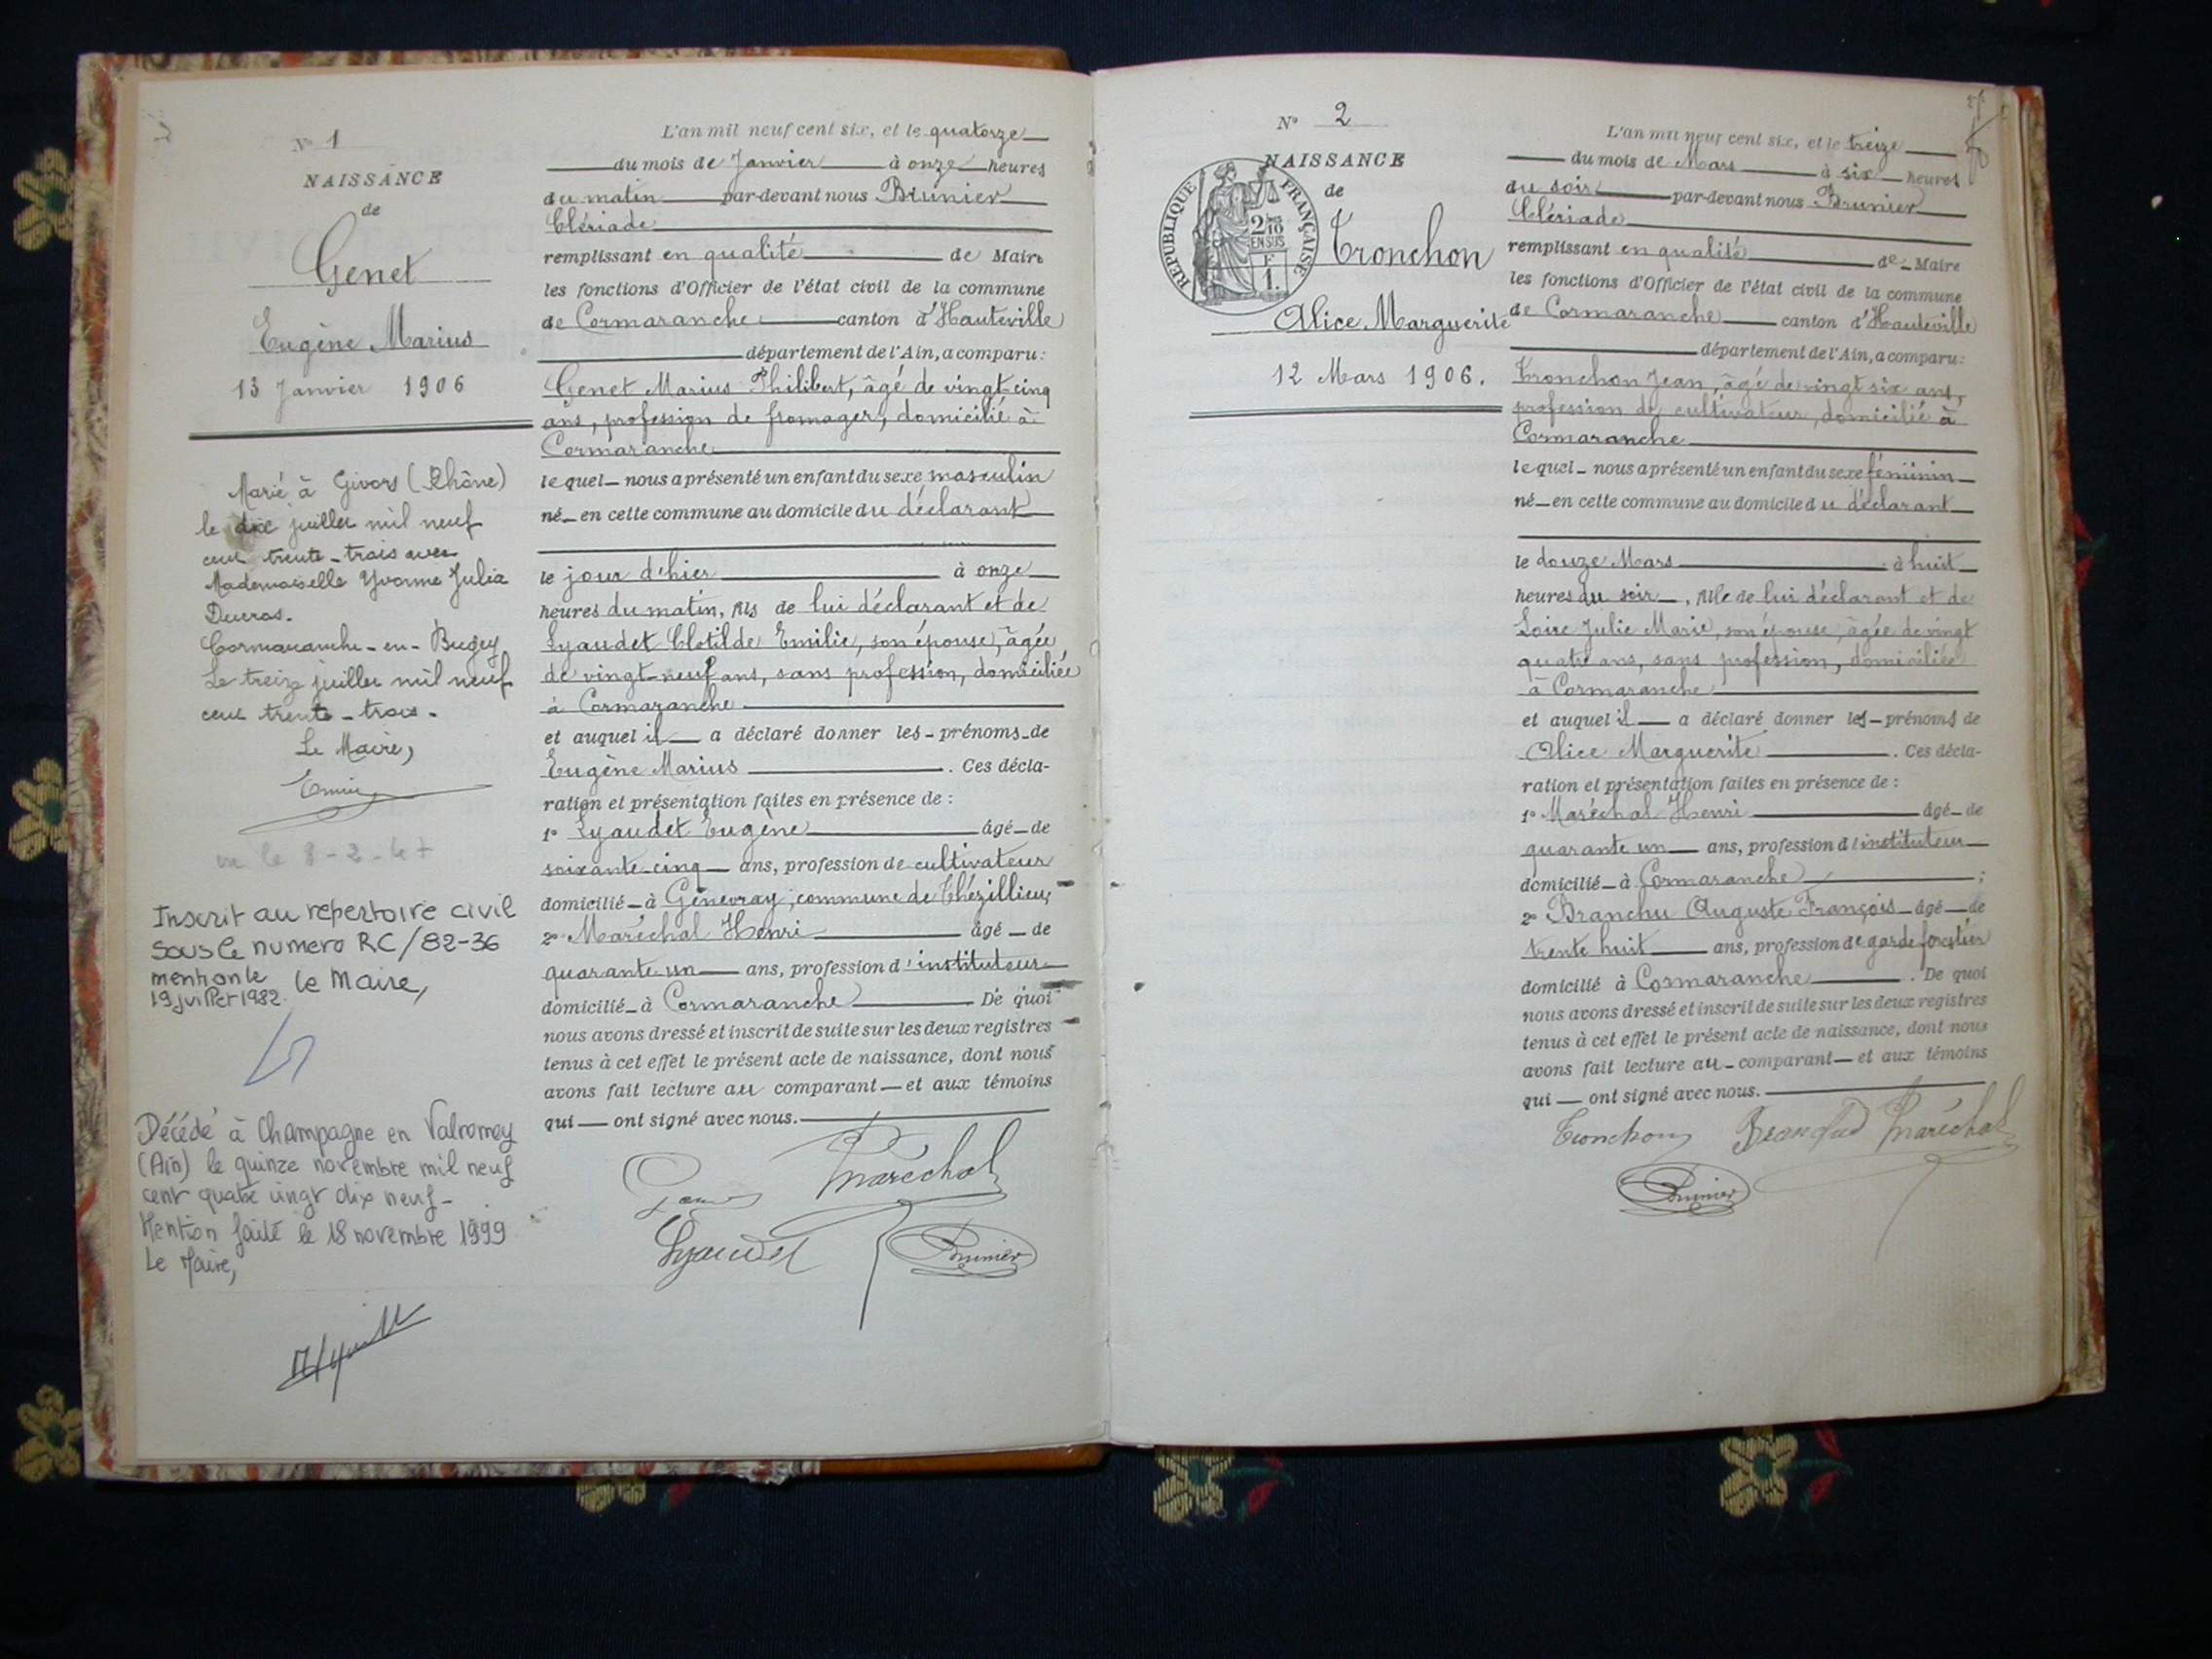 N° 1
NAISSANCE
de
Genet
Eugène Marius
13 Janvier 1906
Marié à Givors (Rhône)
le dix juillet mil neuf
cent trente-trois avec
Mademoiselle Yvonne Julia
Ducros.
Cormaranche-en-Bugey
Le treize juillet mil neuf
cent trente-trois.
Le Maire,
vu le 8-2-47
Inscrit au repertoire civil
sous le numero RC/82-36
mention le
19 juillet 1982. le Maire,
Décédé à Champagne en Valromey
(Ain) le quinze novembre mil neuf
cent quatre vingt dix neuf-
Mention faite le 18 novembre 1999
Le Maire,
L'an mil neuf cent six, et le quatorze
du mois de Janvier à onze heures
du matin par-devant nous Brunier
Clériade
remplissant en qualité de Maire
les fonctions d'Officier de l'état civil de la commune
de Cormaranche canton d'Hauteville
département de l'Ain, a comparu :
Genet Marius Philibert, âgé de vingt-cinq
ans, profession de fromager, domicilié à
Cormaranche
lequel nous a présenté un enfant du sexe masculin
né en cette commune au domicile du déclarant
le jour d'hier à onze
heures du matin, fils de lui déclarant et de
Lyaudet Clotilde Emilie, son épouse, âgée
de vingt-neuf ans, sans profession, domiciliée
à Cormaranche
et auquel il a déclaré donner les prénoms de
Eugène Marius . Ces décla-
ration et présentation faites en présence de :
1° Lyaudet Eugène âgé de
soixante-cinq ans, profession de cultivateur
domicilié à Génevray, commune de Thézillieu;
2° Maréchal Henri âgé de
quarante-un ans, profession d'instituteur
domicilié à Cormaranche De quoi
nous avons dressé et inscrit de suite sur les deux registres
tenus à cet effet le présent acte de naissance, dont nous
avons fait lecture au comparant et aux témoins
qui ont signé avec nous.
Maréchal
Lyaudet Brunier
N° 2
NAISSANCE
de
REPUBLIQUE FRANÇAISE
2/10
EN SUS
F
1.
Tronchon
Alice Marguerite
12 Mars 1906.
L'an mil neuf cent six, et le treize
du mois de Mars à six heures
du soir par-devant nous Brunier
Clériade
remplissant en qualité de Maire
les fonctions d'Officier de l'état civil de la commune
de Cormaranche canton d'Hauteville
département de l'Ain, a comparu :
Tronchon Jean, âgé de vingt six ans,
profession de cultivateur, domicilié à
Cormaranche
lequel nous a présenté un enfant du sexe féminin
né en cette commune au domicile du déclarant
le douze Mars à huit
heures du soir, fille de lui déclarant et de
Loire Julie Marie, son épouse, âgée de vingt
quatre ans, sans profession, domiciliée
à Cormaranche
et auquel il a déclaré donner les prénoms de
Alice Marguerite . Ces décla-
ration et présentation faites en présence de :
1° Maréchal Henri âgé de
quarante un ans, profession d'instituteur
domicilié à Cormaranche ;
2° Branchu Auguste François âgé de
trente huit ans, profession de garde forestier
domicilié à Cormaranche . De quoi
nous avons dressé et inscrit de suite sur les deux registres
tenus à cet effet le présent acte de naissance, dont nous
avons fait lecture au comparant et aux témoins
qui ont signé avec nous.
Tronchon Maréchal
Brunier